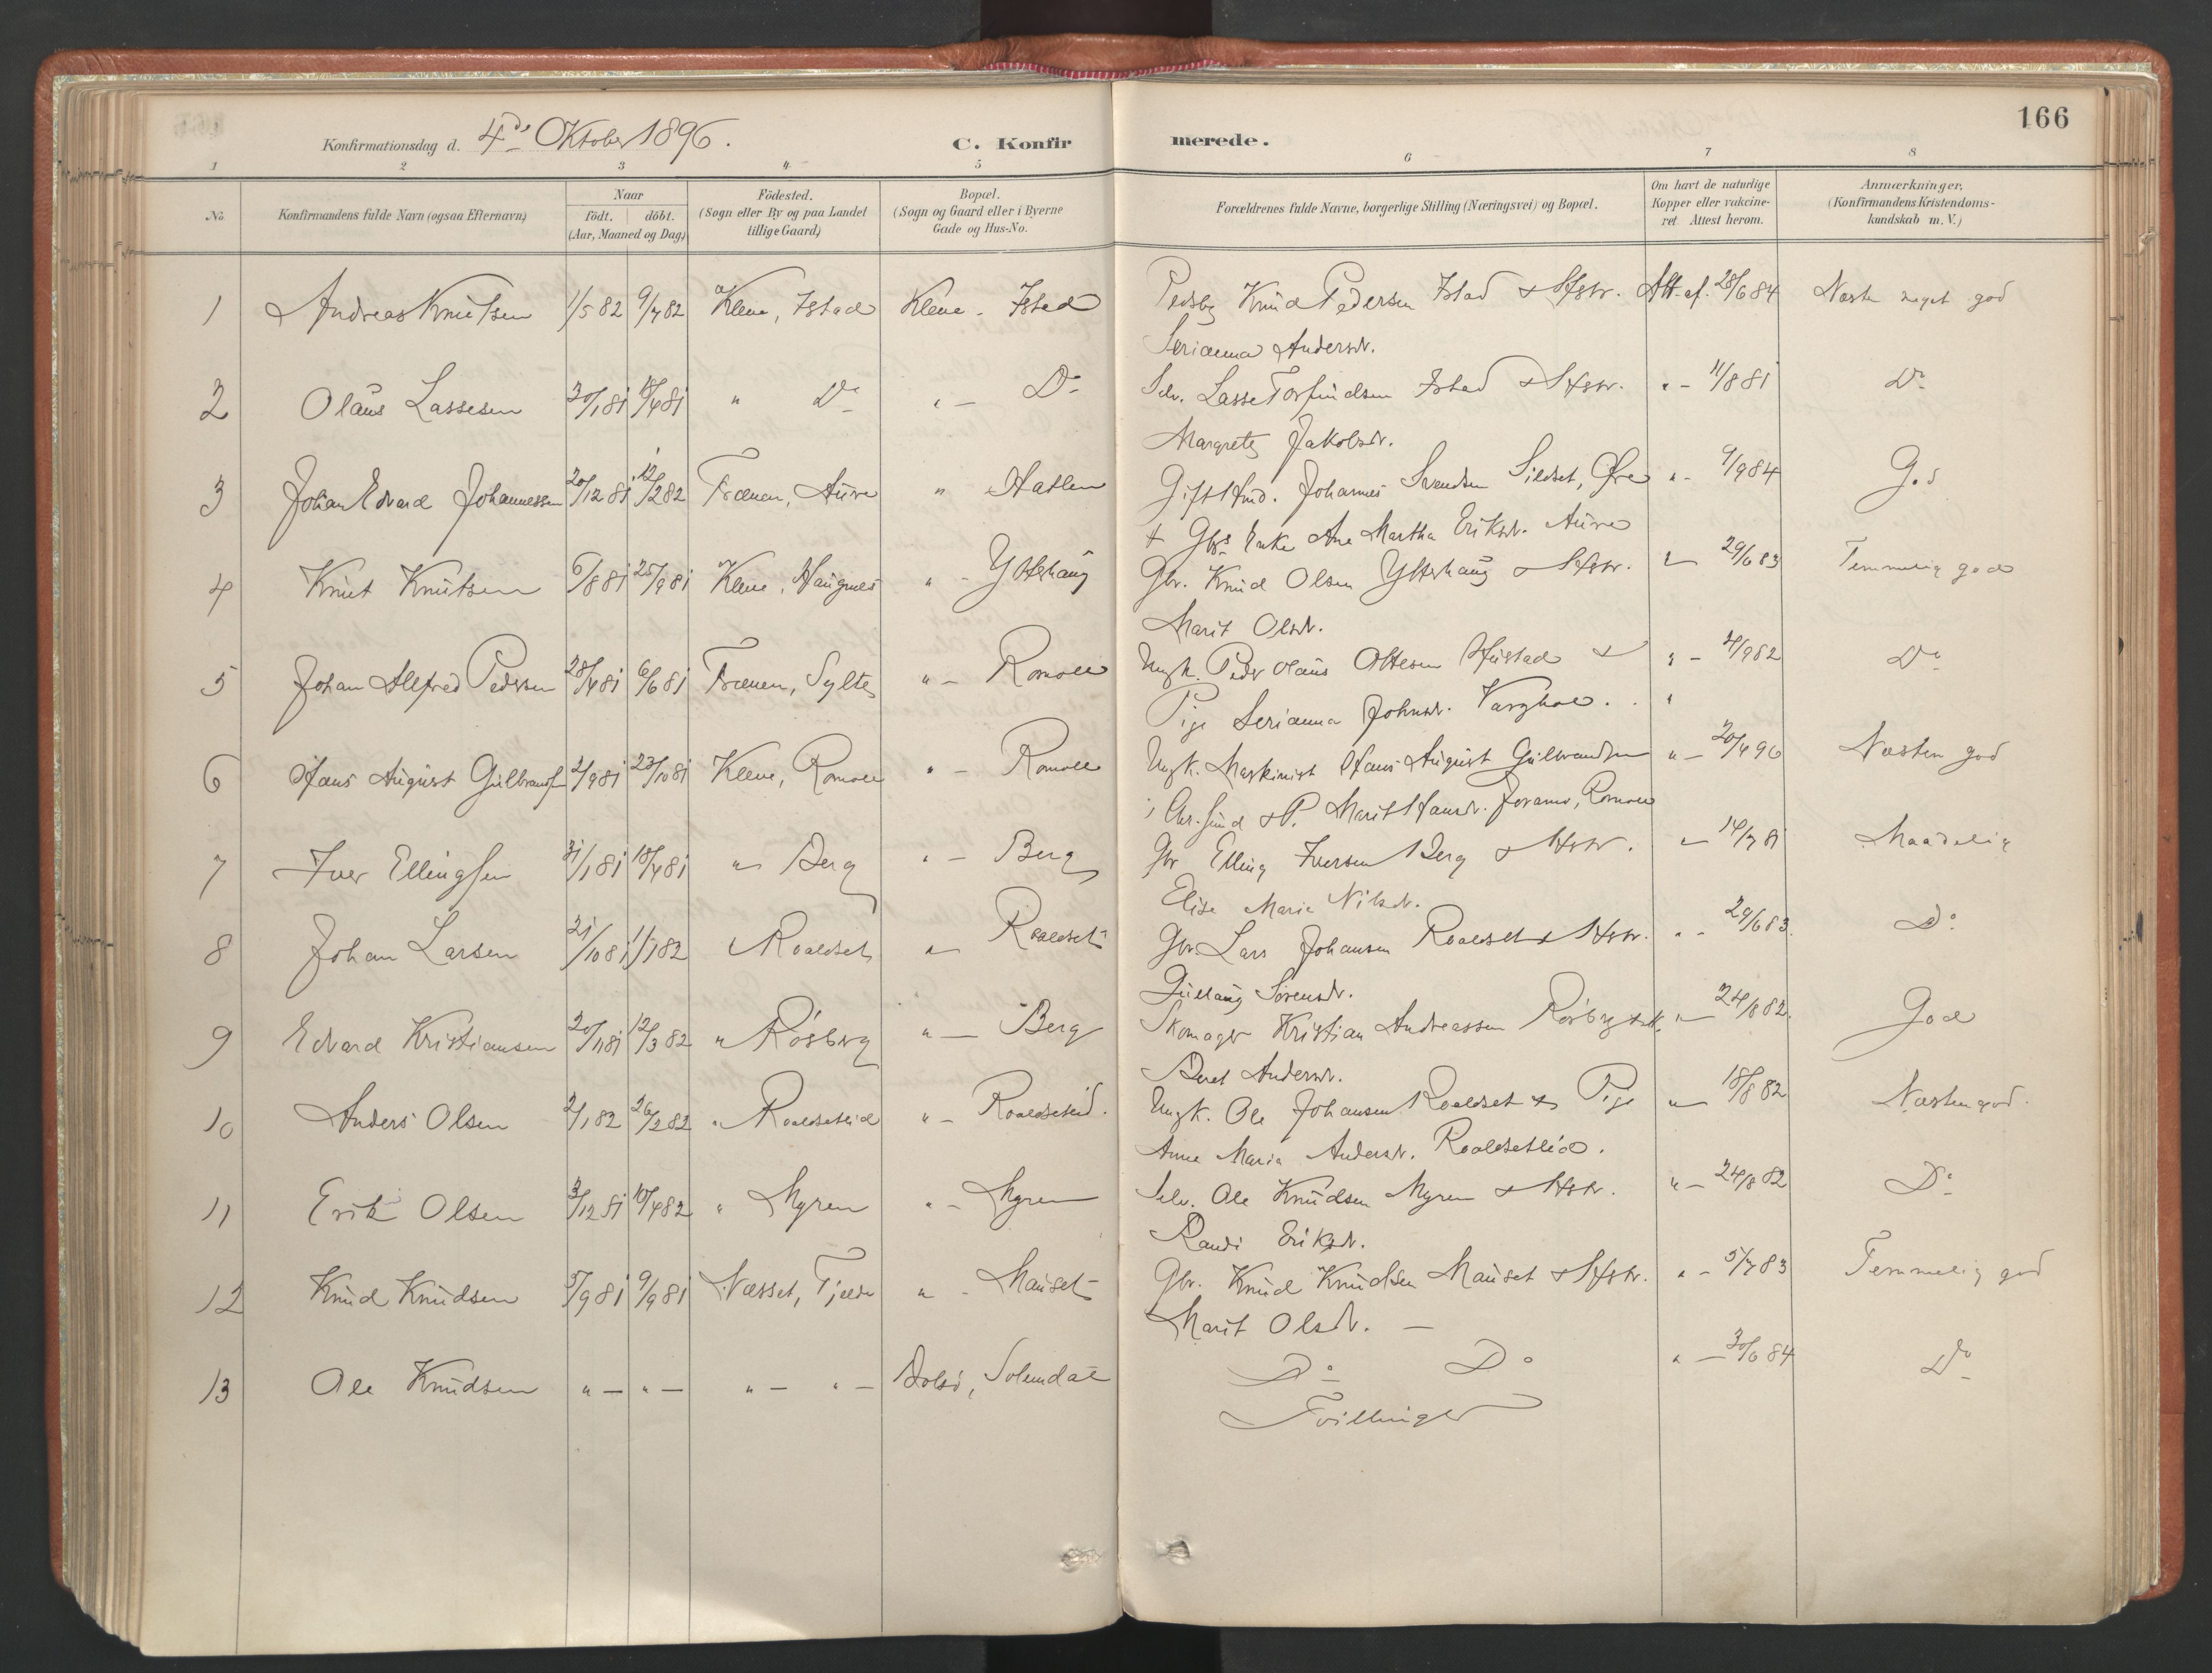 166
Konfirmationsdag d. 4de Oktober 1896.
C. Konfirmerede.
1 2 3 4 5 6 7 8
No.
Konfirmandens fulde Navn (ogsaa Efternavn)
Naar
födt. döbt.
(Aar, Maaned og Dag)
Födested.
(Sogn eller By og paa Landet
tillige Gaard)
Bopæl.
(Sogn og Gaard eller i Byerne
Gade og Hus-No.
Forældrenes fulde Navne, borgerlige Stilling (Næringsvei) og Bopæl.
Om havt de naturlige
Kopper eller vakcine-
ret. Attest herom.
Anmærkninger.
(Konfirmandens Kristendoms-
kundskab m. V.)
1 Andreas Knutsen 1/5 82 9/7 82 Kleve, Istad Kleve - Istad Knud Pedersen Istad & Hstr. Att. af. 28/6 84 Næsten meget god
Serianna Andersdr.
2 Olaus Lassesen 30/1 81 18/4 81 " Do " - Do Selv. Lasse Torfindsen Istad & Hstr. " - 11/8 81 Do
Margrete Jakobsdr.
3 Johan Edvard Johannessen 20/12 81 12/2 82 Frænen, Aure " Hatlen Gift Johannes Svendsen Sildset, Øre " - 9/9 84 God
& Gbrs Enke Ane Martha Eriksdr. Aure
4 Knut Knutsen 6/8 81 25/9 81 Kleve, Haugnes " - Ytterhaug Gbr. Knud Olsen Ytterhaug & Hstr. " - 29/6 83 Temmelig god
Marit Olsdr.
5 Johan Alfred Pedersen 28/4 81 6/6 81 Frænen, Sylte " - Romoen Ungk. Peder Olaus Ottesen Hustad & " - 4/9 82 Do
Pige Serianna Johnsdr. Varghoe. . "
6 Hans August Gulbrandsen 2/9 81 23/10 81 Kleve, Romoen " - Romoen Ungk. Maskinist Hans August Gulbrandsen " - 20/4 96 Næsten god
i Chr.sund & P. Marit Hansdr. Joramo, Romoen
7 Iver Ellingsen 31/1 81 18/4 81 " Berg " - Berg Gbr Elling Iversen Berg & Hstr. " 14/7 81 Maadelig
Elise Marie Nilsdr.
8 Johan Larsen 21/10 81 1/1 82 Roaldset " Roaldset Gbr. Lars Johansen Roaldset & Hstr. " - 29/6 83. Do
Gullaug Sørensdr.
9 Edvard Kristiansen 20/11 81 12/3 82 " Rósberg " - Berg Skomager Kristian Andreassen Rósberg & H. " - 24/8 82. God
Beret Andersdr.
10 Anders Olsen 2/1 82 26/2 82 " Roaldsetlid " - Roaldsetlid. Ungk. Ole Johansen Roaldset & Pige " - 18/8 82 Næsten god.
Anne Maria Andersdr. Roaldsetlid.
11 Erik Olsen 3/12 81 10/4 82 " Myren " - Myren Selv. Ole Knudsen Myren & Hstr. " - 24/8 82 Do
Randi Eriksdr.
12 Knud Knudsen 5/9 81 9/9 81 Næsset, Tjelde " - Mauset Gbr. Knud Knudsen Mauset & Hstr. " - 5/7 83 Temmelig god
Marit Olsdr. —
13 Ole Knudsen " — " — " — " — Bolsö, Solemdal Do Do " — 30/6 84 Do
Tvillinger